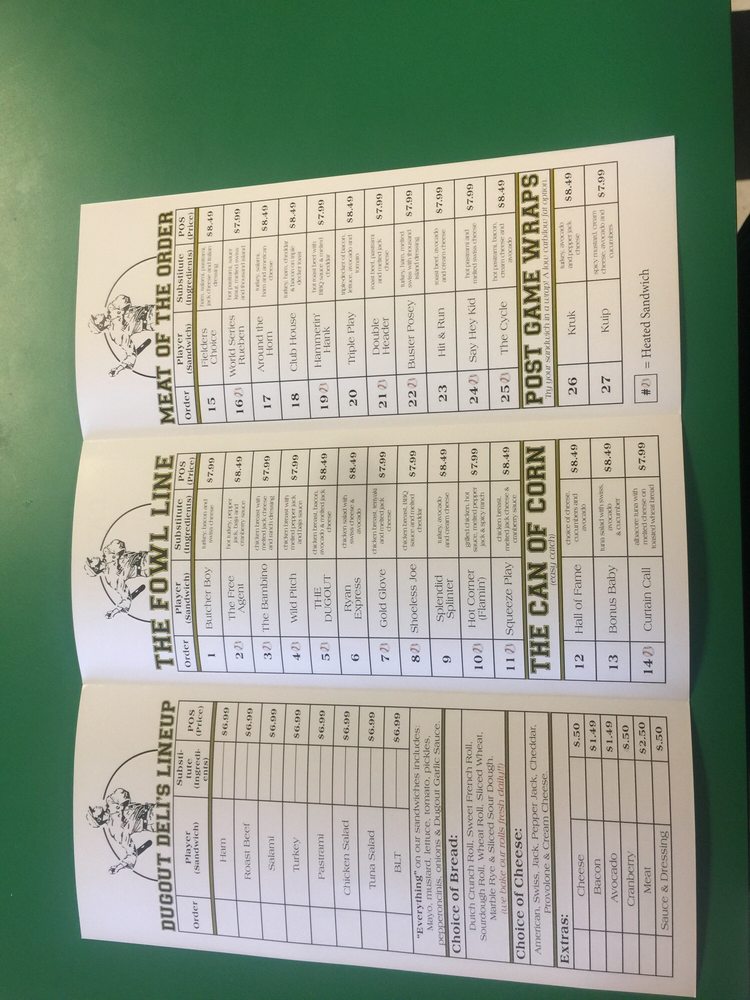 DUGOUT DELI'S LINEUP
Order Player (Sandwich) Substi-tute (Ingredi-ents) POS (Price)
Ham $6.99
Roast Beef $6.99
Salami $6.99
Turkey $6.99
Pastrami $6.99
Chicken Salad $6.99
Tuna Salad $6.99
BLT $6.99
"Everything" on our sandwiches includes:
Mayo, mustard, lettuce, tomato, pickles,
pepperoncinis, onions & Dugout Garlic Sauce.
Choice of Bread:
Dutch Crunch Roll, Sweet French Roll,
Sourdough Roll, Wheat Roll, Sliced Wheat,
Marble Rye & Sliced Sour Dough.
(we bake our rolls fresh daily!!)
Choice of Cheese:
American, Swiss, Jack, Pepper Jack, Cheddar,
Provolone & Cream Cheese.
Extras:
Cheese $.50
Bacon $1.49
Avocado $1.49
Cranberry $.50
Meat $2.50
Sauce & Dressing $.50
THE FOWL LINE
Order Player (Sandwich) Substitute (Ingredients) POS (Price)
1 Butcher Boy turkey, bacon and swiss cheese $7.99
2 The Free Agent hot turkey, pepper jack, baja and cranberry sauce $8.49
3 The Bambino chicken breast with melted jack cheese and ranch dressing $7.99
4 Wild Pitch chicken breast with melted pepper jack and baja sauce $7.99
5 THE DUGOUT chicken breast, bacon, avocado & melted jack cheese $8.49
6 Ryan Express chicken salad with swiss cheese & avocado $8.49
7 Gold Glove chicken breast, teriyaki and melted jack cheese $7.99
8 Shoeless Joe chicken breast, BBQ sauce and melted cheddar $7.99
9 Splendid Splinter turkey, avocado and cream cheese $8.49
10 Hot Corner (Flamin') grilled chicken, hot sauce, melted pepper jack & spicy ranch $7.99
11 Squeeze Play chicken breast, melted jack cheese & cranberry sauce $8.49
THE CAN OF CORN
(easy catch)
12 Hall of Fame choice of cheese, cucumbers and avocado $8.49
13 Bonus Baby tuna salad with swiss, avocado & cucumber $8.49
14 Curtain Call albacore tuna with melted cheese on toasted wheat bread $7.99
MEAT OF THE ORDER
Order Player (Sandwich) Substitute (Ingredients) POS (Price)
15 Fielders Choice ham, salami, pastrami, jack cheese and italian dressing $8.49
16 World Series Rueben hot pastrami, sauerkraut, melted swiss and thousand island $7.99
17 Around the Horn turkey, salami, ham and american cheese $8.49
18 Club House turkey, ham, cheddar & bacon on triple decker toast $8.49
19 Hammerin' Hank hot roast beef with BBQ sauce & melted cheddar $7.99
20 Triple Play triple decker of bacon, lettuce, avocado and tomato $8.49
21 Double Header roast beef, pastrami and melted jack cheese $7.99
22 Buster Posey turkey, ham, melted swiss with thousand island dressing $7.99
23 Hit & Run roast beef, avocado and cream cheese $7.99
24 Say Hey Kid hot pastrami and melted swiss cheese $7.99
25 The Cycle hot pastrami, bacon, cream cheese and avocado $8.49
POST GAME WRAPS
Try your sandwich in a wrap! A low carb/low fat option.
26 Kruk turkey, avocado and pepper jack cheese $8.49
27 Kuip spicy mustard, cream cheese, avocado and cucumbers $7.99
# = Heated Sandwich